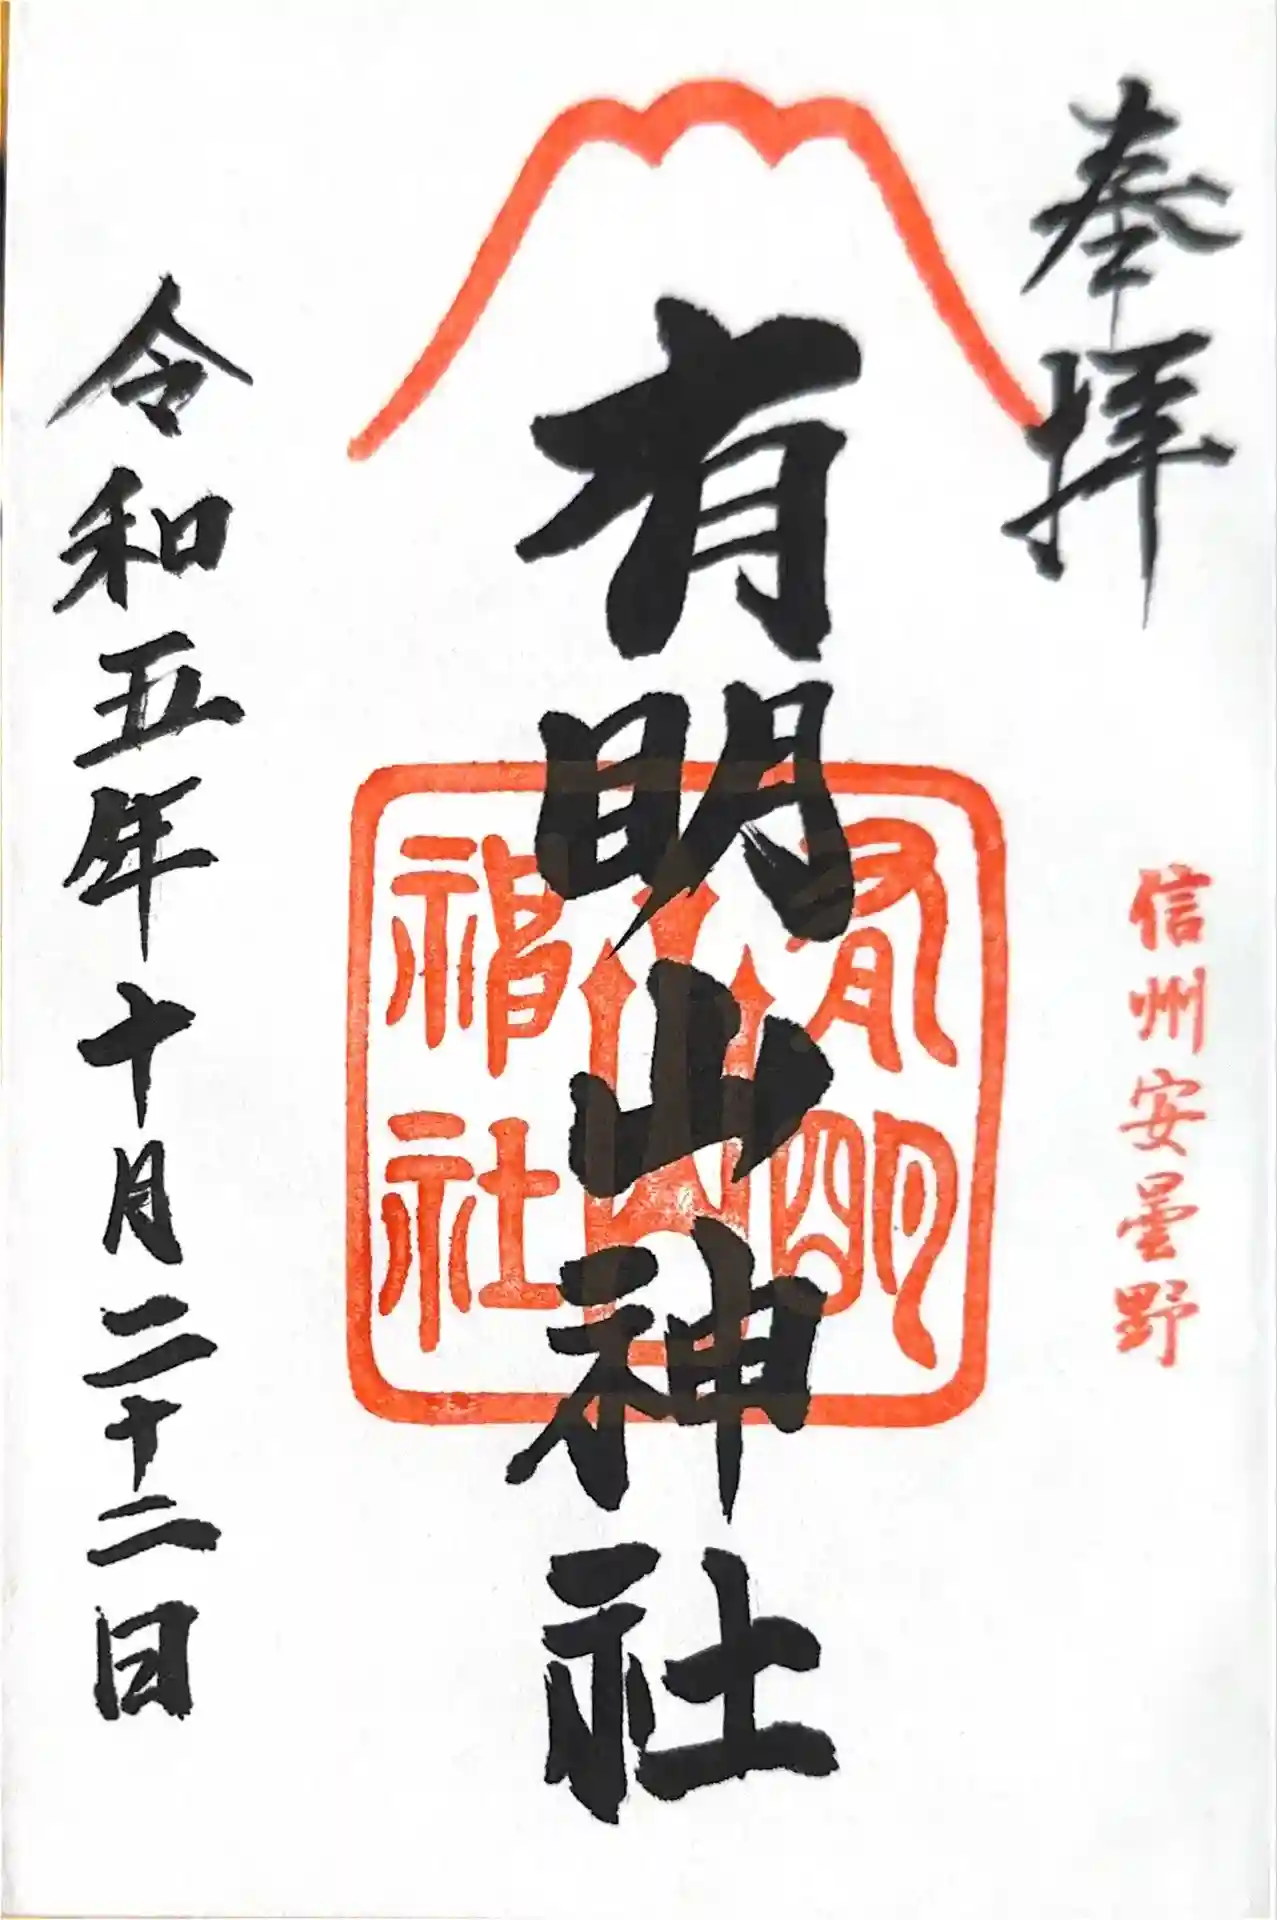 奉拝
信州安曇野
有明山神社
有明
山
神社
令和五年十月二十二日